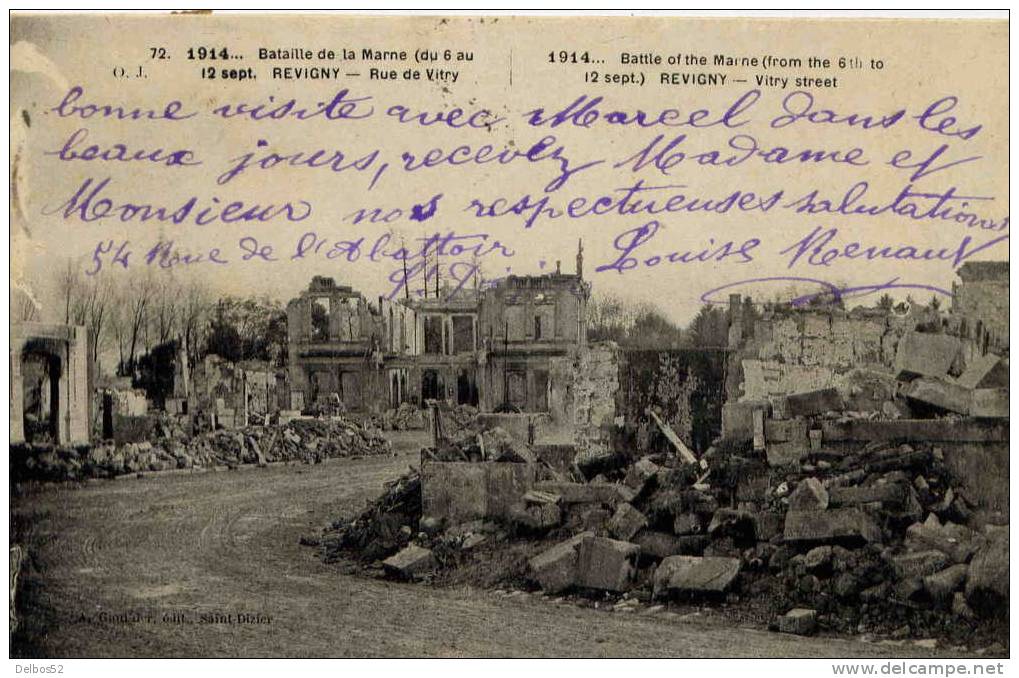 72. 1914... Bataille de la Marne (du 6 au
O. J. 12 sept. REVIGNY — Rue de Vitry
1914... Battle of the Marne (from the 6th to
12 sept.) REVIGNY — Vitry street
bonne visite avec Marcel dans les
beaux jours, recevez Madame et
Monsieur nos respectueuses salutations
54 Rue de l'Abattoir Louise Renaut
St Dizier
édit., Saint-Dizier
Delbos52
www.delcampe.net